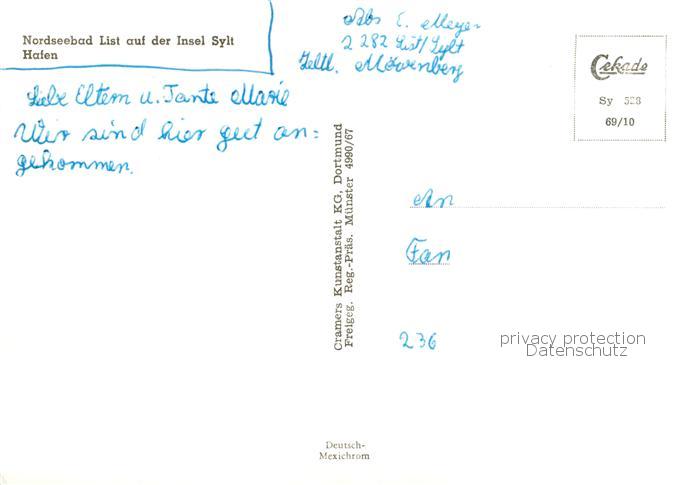 Nordseebad List auf der Insel Sylt
Hafen
Abs E. Meyer
2282 List/Sylt
Zeltl. Möwenberg
Cekade
Sy 528
69/10
Liebe Eltern u. Tante Marie
Wir sind hier gut an=
gekommen.
Cramers Kunstanstalt KG, Dortmund
Freigeg. Reg.-Präs. Münster 4990/67
An
Fam
236
privacy protection
Datenschutz
Deutsch-
Mexichrom